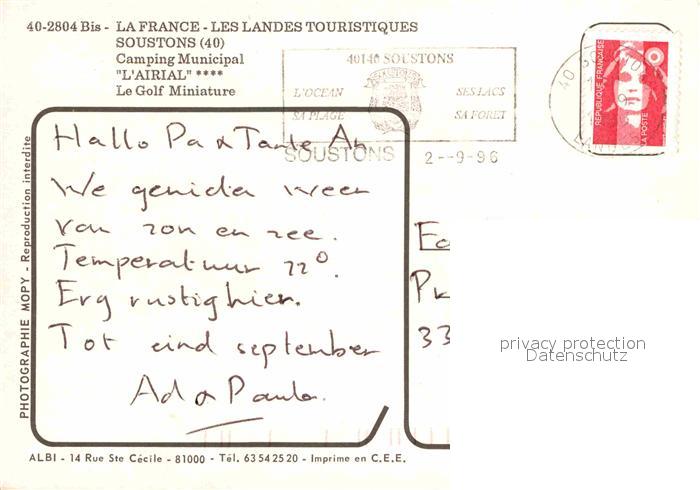 40-2804 Bis - LA FRANCE - LES LANDES TOURISTIQUES
SOUSTONS (40)
Camping Municipal
"L'AIRIAL" ****
Le Golf Miniature
40140 SOUSTONS
L'OCEAN SES LACS
SA PLAGE SA FORET
SOUSTONS 2--9-96
REPUBLIQUE FRANÇAISE
LA POSTE
PHOTOGRAPHIE MOPY - Reproduction interdite
Hallo Pa & Tante An
We genieten weer
van zon en zee.
Temperatuur 22°.
Erg rustig hier.
Tot eind september
Ad & Paula.
Ec
Pr
33
privacy protection
Datenschutz
ALBI - 14 Rue Ste Cécile - 81000 - Tél. 63 54 25 20 - Imprime en C.E.E.